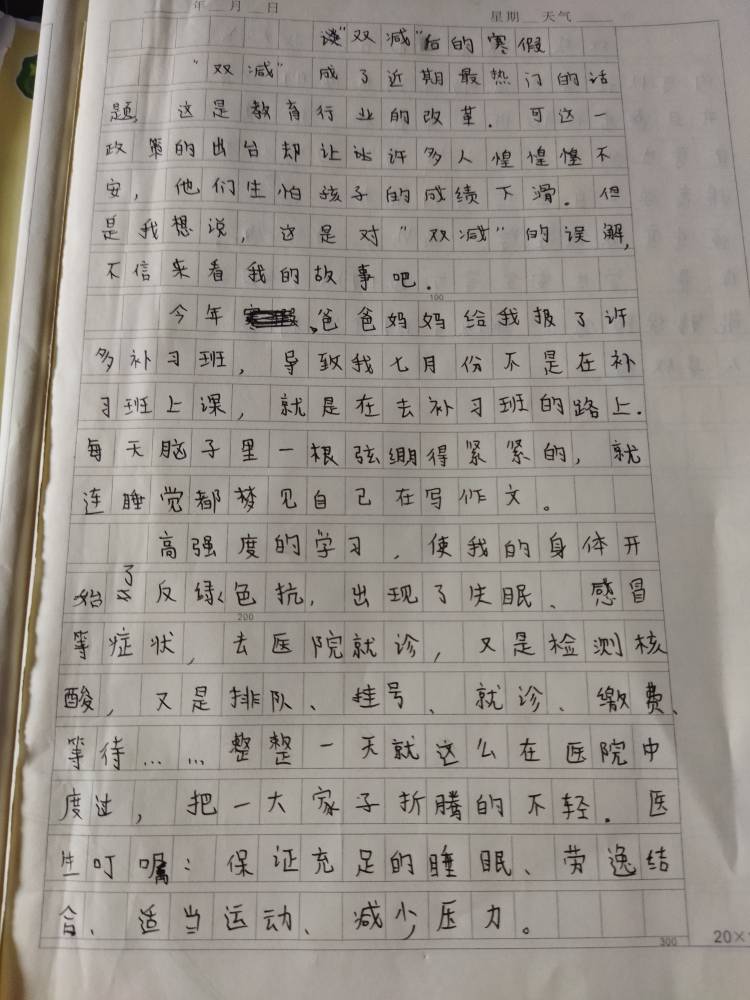 年 月 日 星期 天气
谈"双减"后的寒假
"双减"成了近期最热门的话
题,这是教育行业的改革.可这一
政策的出台却让许多人惶惶惶不
安,他们生怕孩子的成绩下滑.但
是我想说,这是对"双减"的误解,
不信来看我的故事吧.
100
今年、爸爸妈妈给我报了许
多补习班,导致我七月份不是在补
习班上课,就是在去补习班的路上.
每天脑子里一根弦绷得紧紧的,就
连睡觉都梦见自己在写作文。
高强度的学习,使我的身体开
始了反绿色抗,出现了失眠、感冒
200
等症状,去医院就诊,又是检测核
酸,又是排队、挂号、就诊、缴费、
等待……整整一天就这么在医院中
度过,把一大家子折腾的不轻.医
生叮嘱:保证充足的睡眠、劳逸结
合、适当运动、减少压力。
300